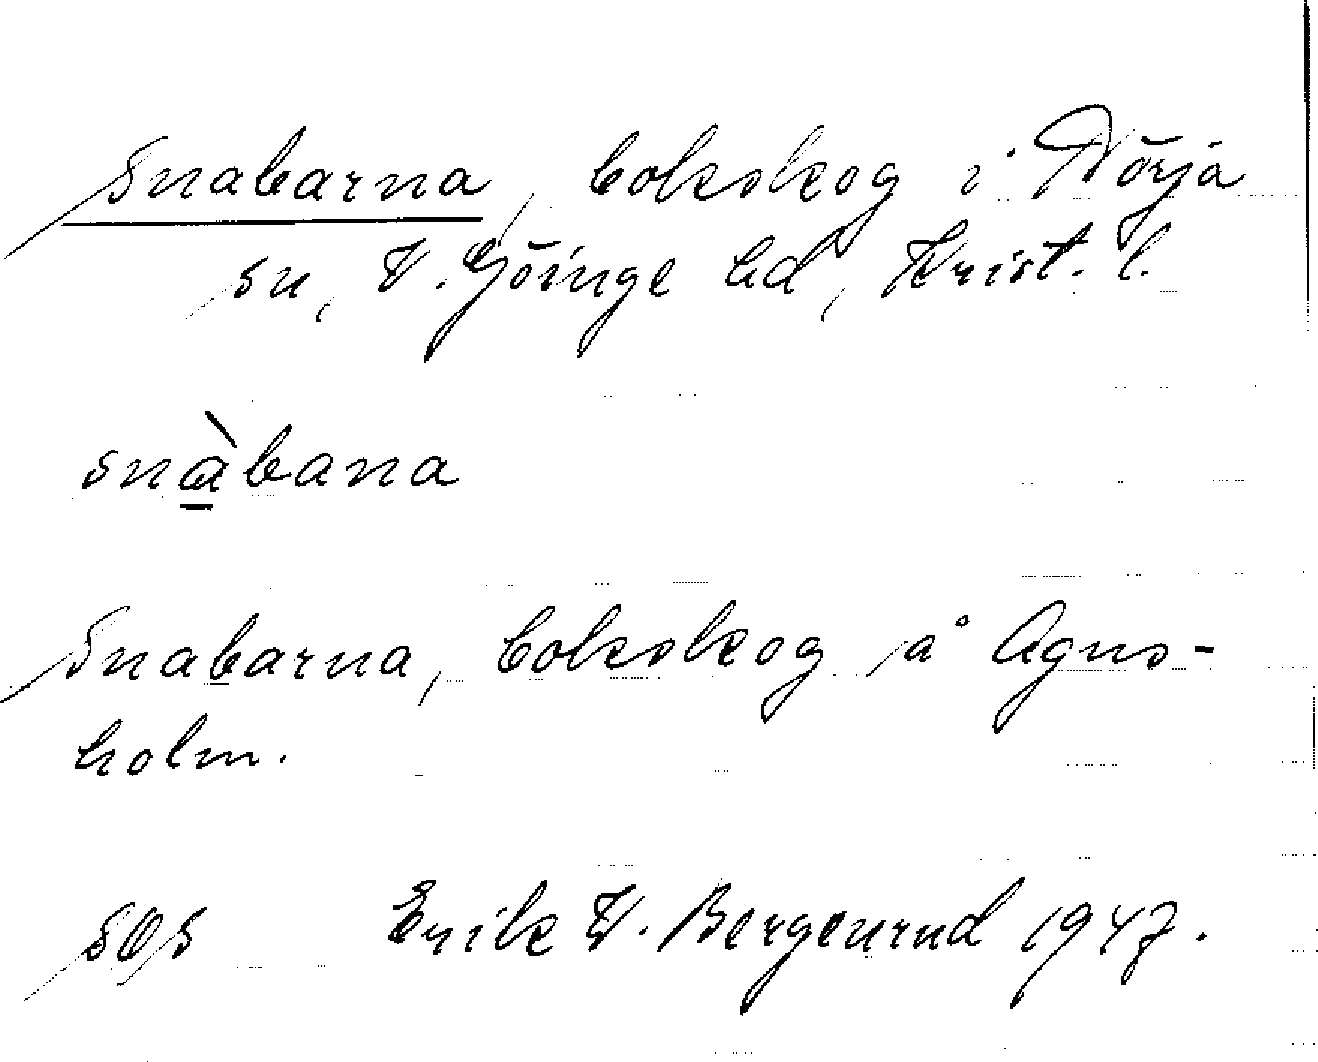 Snabarna, bokskog i Nörja
sn, V. Göinge hd, Krist. l.
snàbana
Snabarna, bokskog på Agns-
holm.
SOS Erik W. Bergenrud 1947.